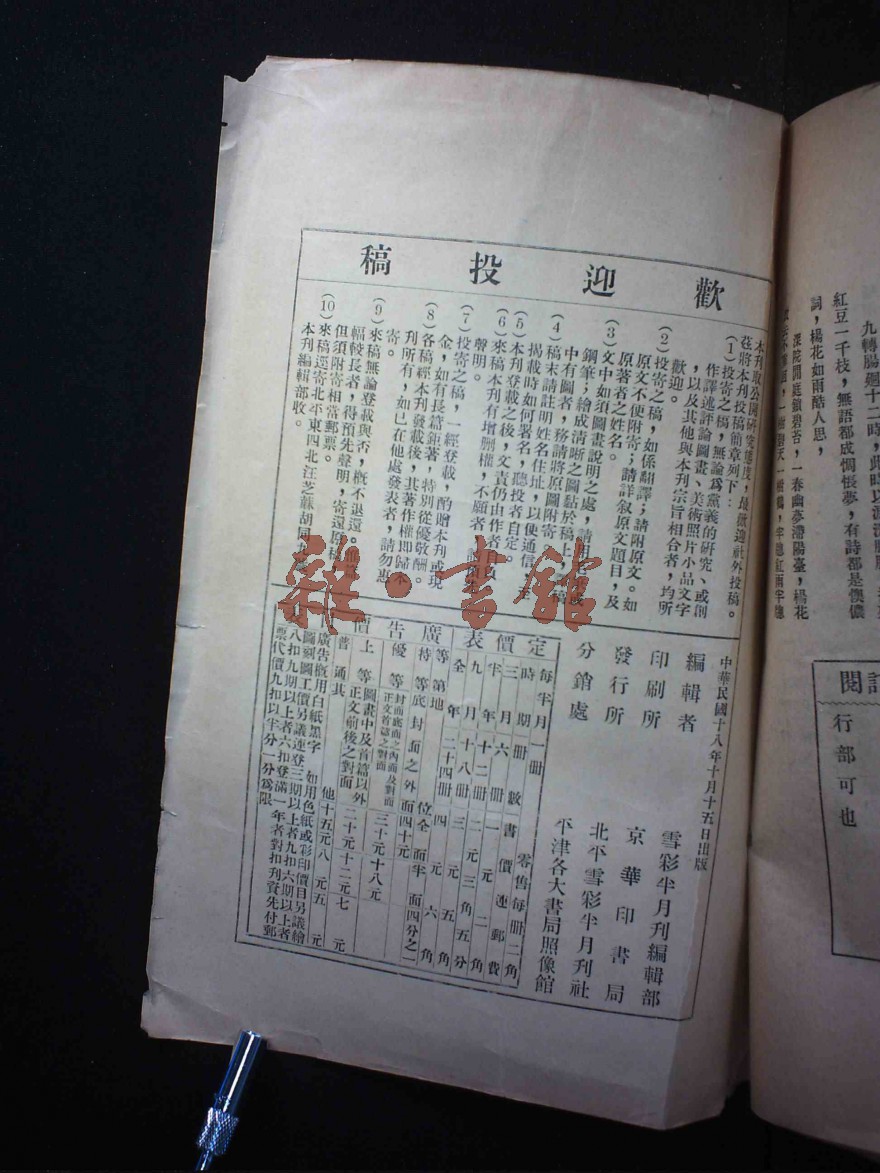 歡迎投稿
本刊取公開研究態度，最歡迎社外投稿。
茲將本刊投稿簡章列下：
(1)投寄之稿，無論為黨義的研究、或創
作譯述評論圖畫、美術照片小品文字
，以及其他與本刊宗旨相合者，均所
歡迎。
(2)投寄之稿，如係翻譯；請附原文。如
原文不便附寄；請詳叙原文題目，及
原著者之姓名。
(3)文中如須圖畫說明之處，請用
鋼筆；繪成清晰之圖黏於稿上，
中有圖者，務請將原圖附寄
(4)稿末請註明姓名住址，以便通信，至
揭載時如何署名，聽投者自定。
(5)本刊登載之後，文責仍由作者自負
(6)來稿本刊有增删權，不願者，
聲明。
(7)投寄之稿，一經登載，酌贈本刊或現
金，如有長篇鉅著，特別從優敬酬。
(8)各稿經本刊發載後，其著作權即歸本
刊所有，如已在他處發表者，請勿惠
寄。
(9)來稿無論登載與否，概不退還。
幅較長者，得預先聲明，寄還原稿
但須附寄相當郵票。
(10)來稿逕寄北平東四北汪芝蔴胡同
本刊編輯部收。
中華民國十八年十月十五日出版
編輯者 雪彩半月刊編輯部
印刷所 京華印書局
發行所 北平雪彩半月刊社
分銷處 平津各大書局照像館
定價表
每半月一冊 零售每冊二角
時期 冊數 書價連郵費
三月 六冊 一元二角
半年 十二冊 二元三角
九月 十八冊 三元五角五分
全年 二十四冊 四元五角
廣告價
等第 地位 全面 半面 四分之一
特等 底封面之外面 四十元
優等 封面底面之內面及對面正文首篇之對面 三十元 十八元
上等 圖畫中及首篇以外正文前後之對面 二十元 十二元 七元
普通 其他 十五元 八元 五元
廣告概用白紙黑字 如用色紙或彩印價目另議繪
圖刻圖工價另議連登三期以上者九扣六期以上者
八扣九期以上者六扣登滿一年者對扣刊資先付郵
票代價九扣以半分一分為限
雜·書館
九轉腸廻十二時，此時以
紅豆一千枝，無語都成惆悵夢，有詩都是懊儂
詞，楊花如雨酷人思，
深院閒庭鎖碧苔，一春幽夢滯陽臺，楊花
訂閱
行部可也